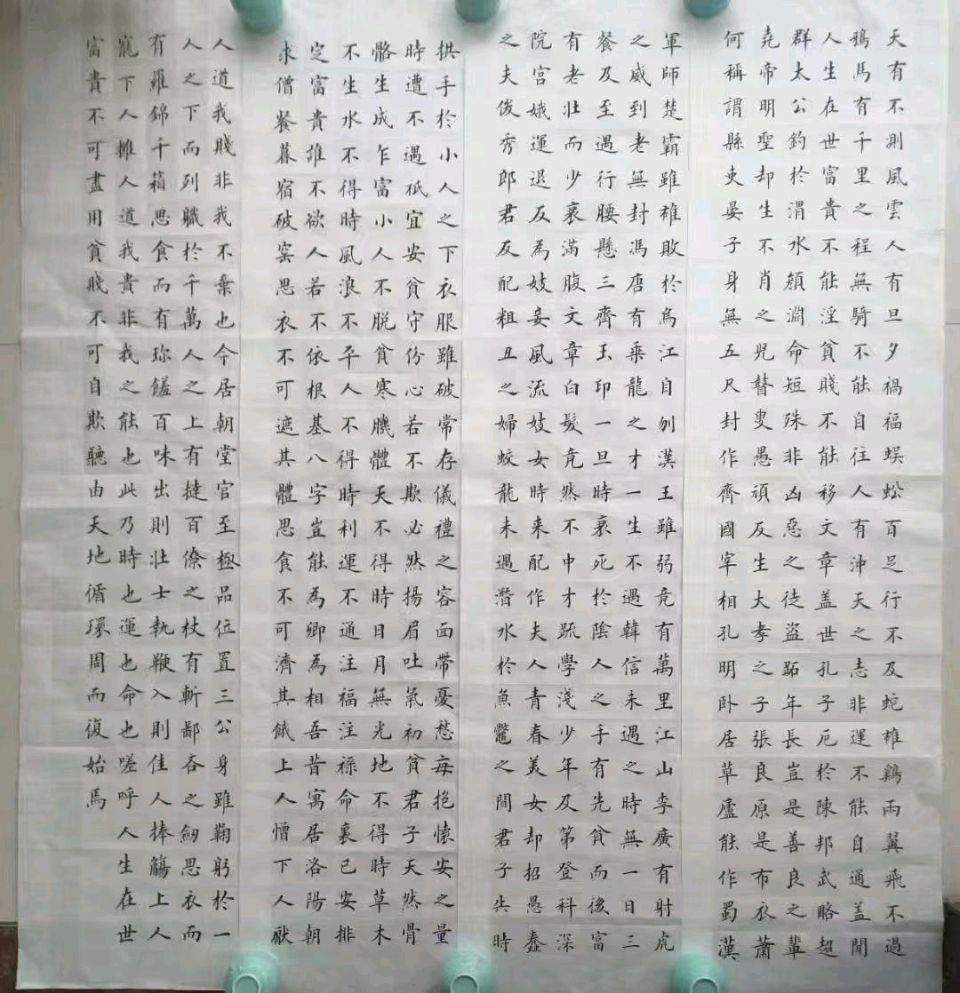 天有不測風雲人有旦夕禍福蜈蚣百足行不及蛇雄鷄兩翼飛不過
鴉馬有千里之程無騎不能自往人有沖天之志非運不能自通盖聞
人生在世富貴不能淫貧賤不能移文章盖世孔子厄於陳邦武略超
群太公釣於渭水顏淵命短殊非凶惡之徒盜跖年長豈是善良之輩
堯帝明聖却生不肖之兒瞽叟愚頑反生大孝之子張良原是布衣蕭
何稱謂縣吏晏子身無五尺封作齊國宰相孔明卧居草廬能作蜀漢
軍師楚霸雖雄敗於烏江自刎漢王雖弱竟有萬里江山李廣有射虎
之威到老無封馮唐有乘龍之才一生不遇韓信未遇之時無一日三
餐及至遇行腰懸三齊玉印一旦時衰死於陰人之手有先貧而後富
有老壯而少衰滿腹文章白髮竟然不中才疏學淺少年及第登科深
院宮娥運退反為妓妾風流妓女時来配作夫人青春美女却招愚蠢
之夫俊秀郎君反配粗丑之婦蛟龍未遇潛水於魚鼈之間君子失時
拱手於小人之下衣服雖破常存儀禮之容面帶憂愁每抱懷安之量
時遭不遇祇宜安貧守份心若不欺必然揚眉吐氣初貧君子天然骨
骼生成乍富小人不脫貧寒機體天不得時日月無光地不得時草木
不生水不得時風浪不平人不得時利運不通注福注祿命裏已安排
定富貴誰不欲人若不依根基八字豈能為卿為相吾昔寓居洛陽朝
求僧餐暮宿破窑思衣不可遮其體思食不可濟其餓上人憎下人厭
人道我賤非我不棄也今居朝堂官至極品位置三公身雖鞠躬於一
人之下而列職於千萬人之上有撻百僚之杖有斬鄙吝之劒思衣而
有羅錦千箱思食而有珍饈百味出則壯士執鞭入則佳人捧觴上人
寵下人擁人道我貴非我之能也此乃時也運也命也嗟呼人生在世
富貴不可盡用貧賤不可自欺聽由天地循環周而復始馬